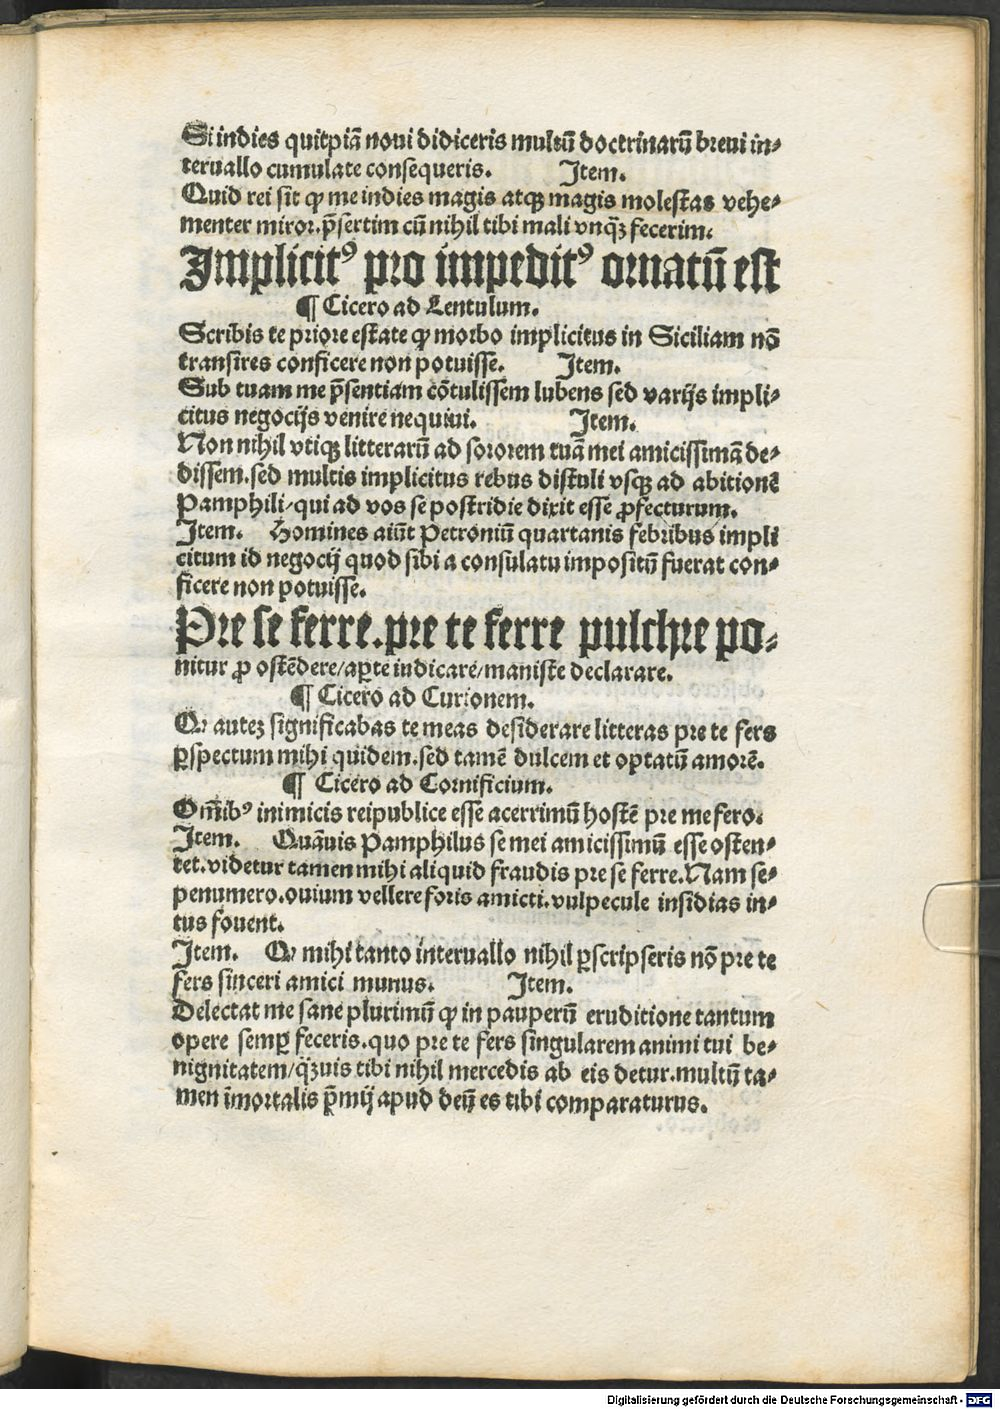 Si indies quitpiā noui didiceris multū doctrinarū breui in⸗
teruallo cumulate consequeris. Item.
Quid rei sit ꝙ me indies magis atqꝫ magis molestas vehe⸗
menter miror. p̄sertim cū nihil tibi mali vnq̄ꝫ fecerim.
Implicitꝰ pro impeditꝰ ornatū est
¶ Cicero ad Lentulum.
Scribis te priore estate ꝙ morbo implicitus in Siciliam nō
transires conficere non potuisse. Item.
Sub tuam me p̄sentiam cōtulissem lubens sed varijs impli⸗
citus negocijs venire nequiui. Item.
Non nihil vtiqꝫ litterarū ad sororem tuā mei amicissimā de⸗
dissem. sed multis implicitus rebus distuli vsqꝫ ad abitionē
Pamphili/qui ad vos se postridie dixit esse ꝓfecturum.
Item. Homines aiūt Petroniū quartanis febribus impli
citum id negocij quod sibi a consulatu impositū fuerat con⸗
ficere non potuisse.
Pre se ferre. pre te ferre pulchre po⸗
nitur ꝓ ostēdere/aꝑte iudicare/maniste declarare.
¶ Cicero ad Curionem.
Ꝙ auteꝫ significabas te meas desiderare litteras pre te fers
ꝑspectum mihi quidem. sed tamē dulcem et optatū amorē.
¶ Cicero ad Cornificium.
Om̄ibꝰ inimicis reipublice esse acerrimū hostē pre me fero.
Item. Quāuis Pamphilus se mei amicissimū esse osten⸗
tet. videtur tamen mihi aliquid fraudis pre se ferre. Nam se⸗
penumero. ouium vellere foris amicti. vulpecule insidias in⸗
tus fouent.
Item. Ꝙ mihi tanto interuallo nihil ꝑscripseris nō pre te
fers sinceri amici munus. Item.
Delectat me sane plurimū ꝙ in pauperū eruditione tantum
opere semꝑ feceris. quo pre te fers singularem animi tui be⸗
nignitatem/q̄ꝫuis tibi nihil mercedis ab eis detur. multū ta⸗
men īmortalis p̄mij apud deū es tibi comparaturus.
Digitalisierung gefördert durch die Deutsche Forschungsgemeinschaft - DFG